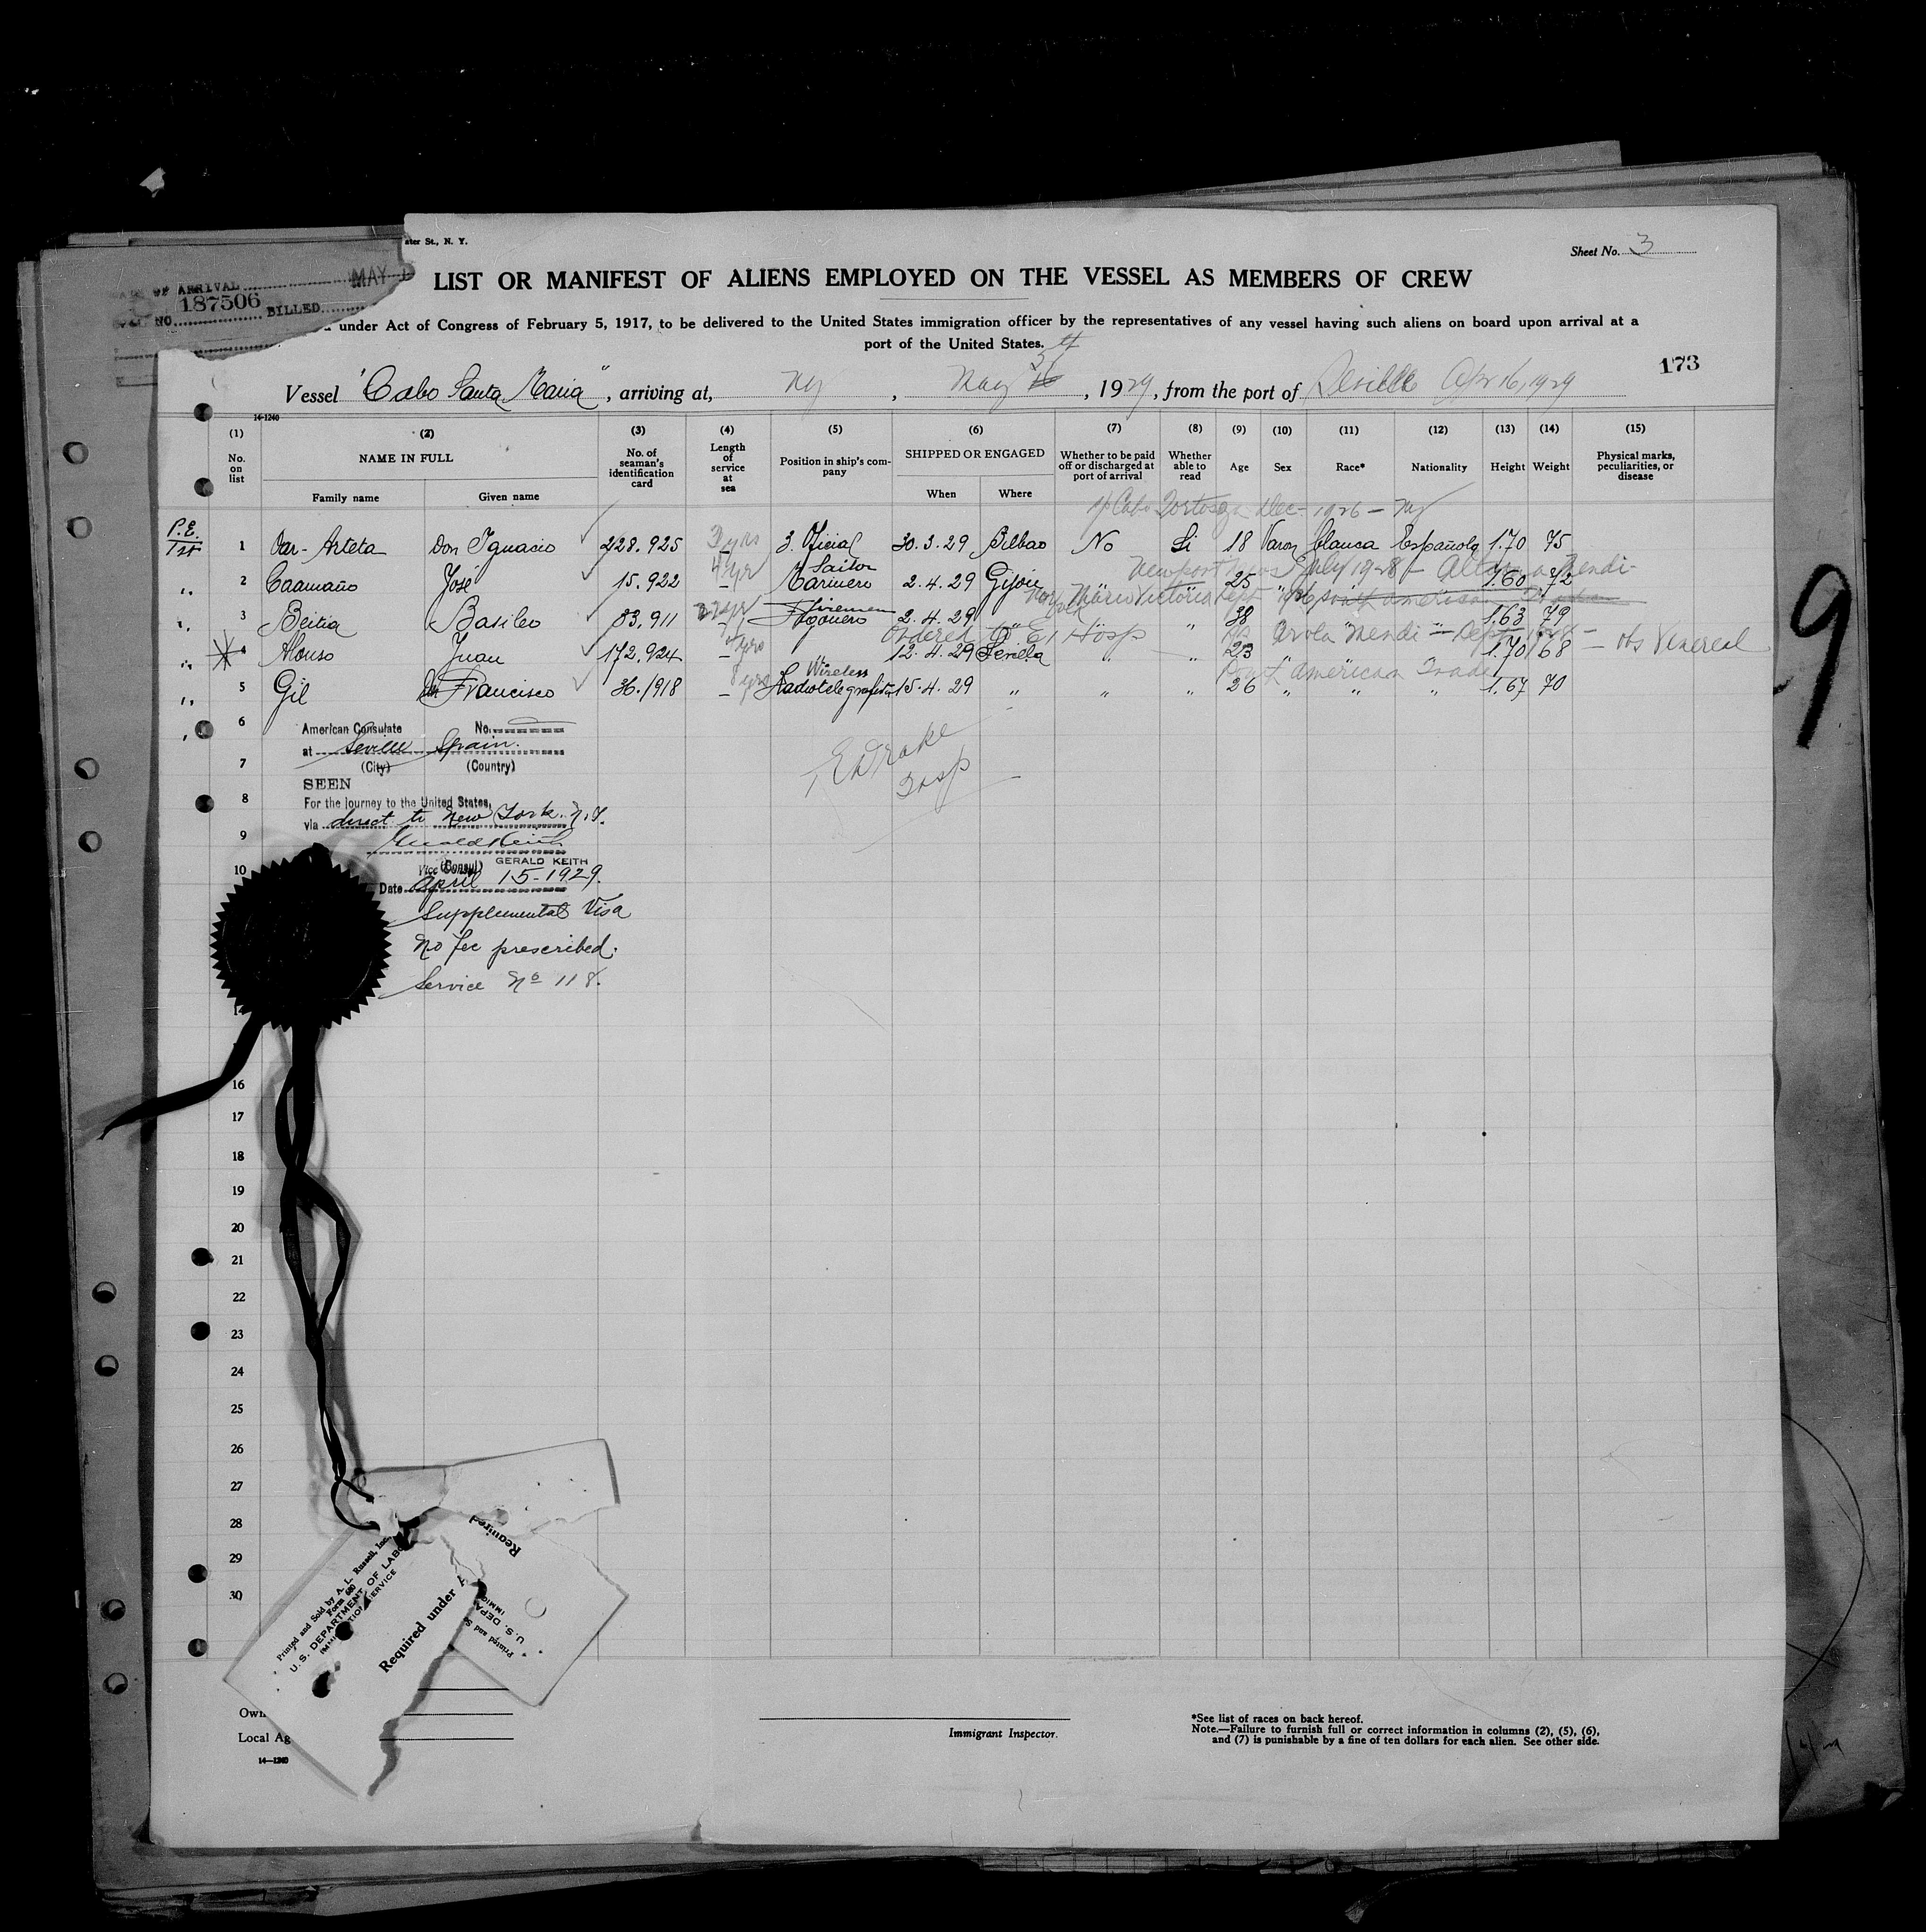 ater St., N. Y.
Sheet No. 3
OF ARRIVAL MAY
NO. 187506 BILLED
LIST OR MANIFEST OF ALIENS EMPLOYED ON THE VESSEL AS MEMBERS OF CREW
under Act of Congress of February 5, 1917, to be delivered to the United States immigration officer by the representatives of any vessel having such aliens on board upon arrival at a
port of the United States.
173
Vessel "Cabo Santa Maria", arriving at, Ny, May, 1929, from the port of Seville Apr 16, 1929
14-1240
(1) (2) (3) (4) (5) (6) (7) (8) (9) (10) (11) (12) (13) (14) (15)
No. on list NAME IN FULL No. of seaman's identification card Length of service at sea Position in ship's company SHIPPED OR ENGAGED Whether to be paid off or discharged at port of arrival Whether able to read Age Sex Race* Nationality Height Weight Physical marks, peculiarities, or disease
Family name Given name When Where
Cabo Tortosa Dec- 1926 - Ny
P.E.
1st 1 Var- Arteta Don Ignacio 228.925 3 yrs 3. Oficial 30.3.29 Bilbao No Si 18 Varon blanca Española 1.70 75
Sailor Newport News July 1928 - Mendi
2 Caamaño José 15.922 4 yr Marinero 2.4.29 Gijon " " 25 1.60 72
Firemen Maria Victoria Sept 1926 South American
3 Beitia Basileo 83.911 Fogonero 2.4.29 " " 38 1.63 79
Ordered to E I Hosp Arola Mendi - Sept 1928 -
4 Alonso Juan 172.924 4 yrs 12.4.29 Sevilla " " 23 1.70 68 - Obs Venereal
Wireless South American Trade
5 Gil Don Francisco 36.1918 yrs Radiotelegrafista 15.4.29 " " " 26 " " " 1.67 70
6
American Consulate No.
at Seville Spain.
7
(City) (Country)
E Drake
Insp
SEEN
8
For the journey to the United States,
via direct to New York. N.Y.
9
Gerald Keith
GERALD KEITH
10
Vice (Consul)
Date April 15-1929.
Supplemental Visa
No fee prescribed.
Service No 118.
16
17
18
19
20
21
22
23
24
25
26
27
28
29
30
9
Required
Printed and Sold by A. L. Russell, Inc.
Form 680
U. S. DEPARTMENT OF LABO
IMMIGRATION SERVICE
Required under
Printed and S
U. S. DEPA
IMMIG
Own
Local Ag
14-1240
Immigrant Inspector.
*See list of races on back hereof.
Note.—Failure to furnish full or correct information in columns (2), (5), (6),
and (7) is punishable by a fine of ten dollars for each alien. See other side.